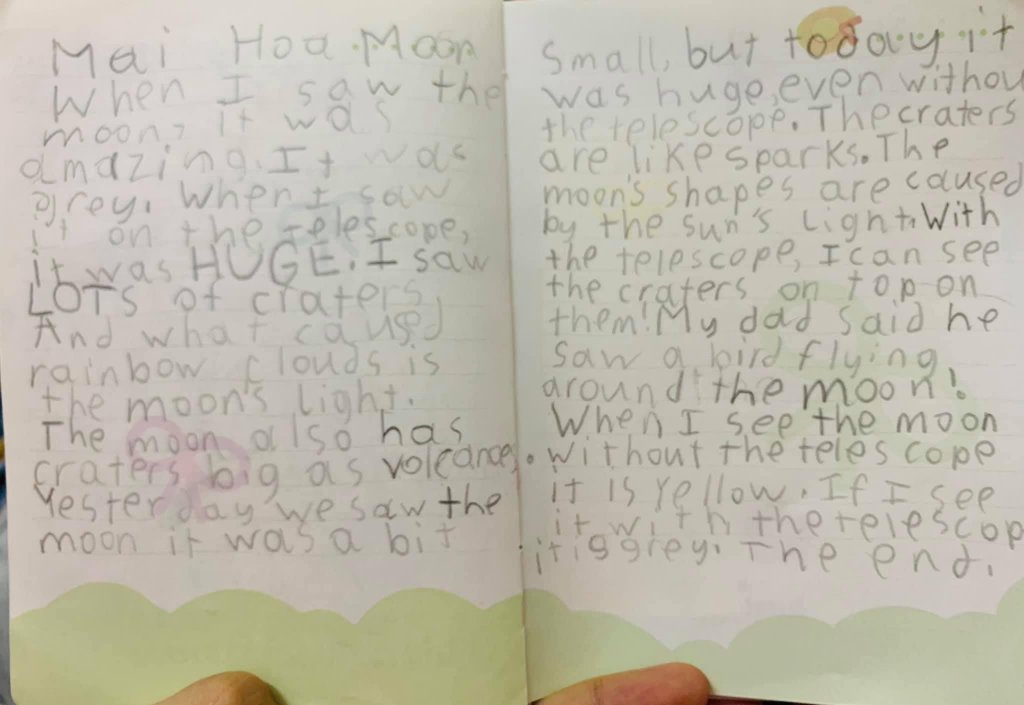 Mai Hoa Moon
When I saw the
moon, it was
amazing. It was
grey. When I saw
it on the telescope,
it was HUGE. I saw
LOTS of craters,
And what caused
rainbow clouds is
the moon's light.
The moon also has
craters big as volcanoes.
Yesterday we saw the
moon it was a bit
small, but today it
was huge, even withou
the telescope. The craters
are like sparks. The
moon's shapes are caused
by the sun's light. With
the telescope, I can see
the craters on top on
them! My dad said he
saw a bird flying
around the moon!
When I see the moon
without the telescope
it is yellow. If I see
it with the telescop
it is grey. The end.